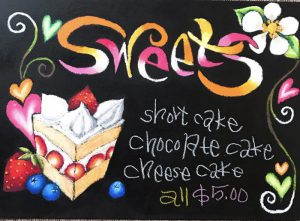 Sweets
short cake
chocolate cake
cheese cake
all $5.00